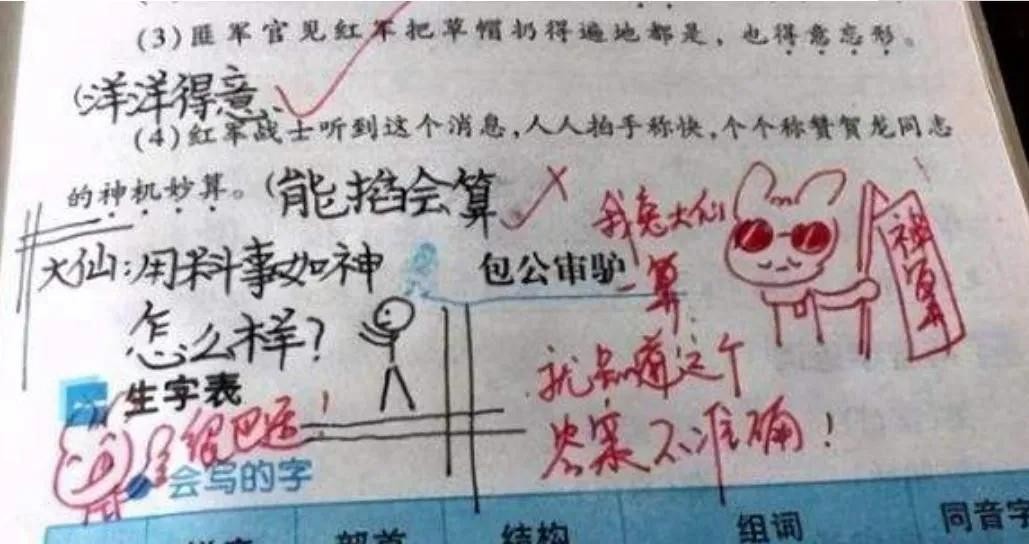 (3)匪军官见红军把草帽扔得遍地都是，也得意忘形。
(洋洋得意
(4)红军战士听到这个消息，人人拍手称快，个个称赞贺龙同志
的神机妙算。(能掐会算
我兔大仙
神算
大仙：用料事如神
包公审驴
一算
怎么样？
就知道这个
生字表
很巴适！
答案不准确！
会写的字
部首
结构
组词
同音字